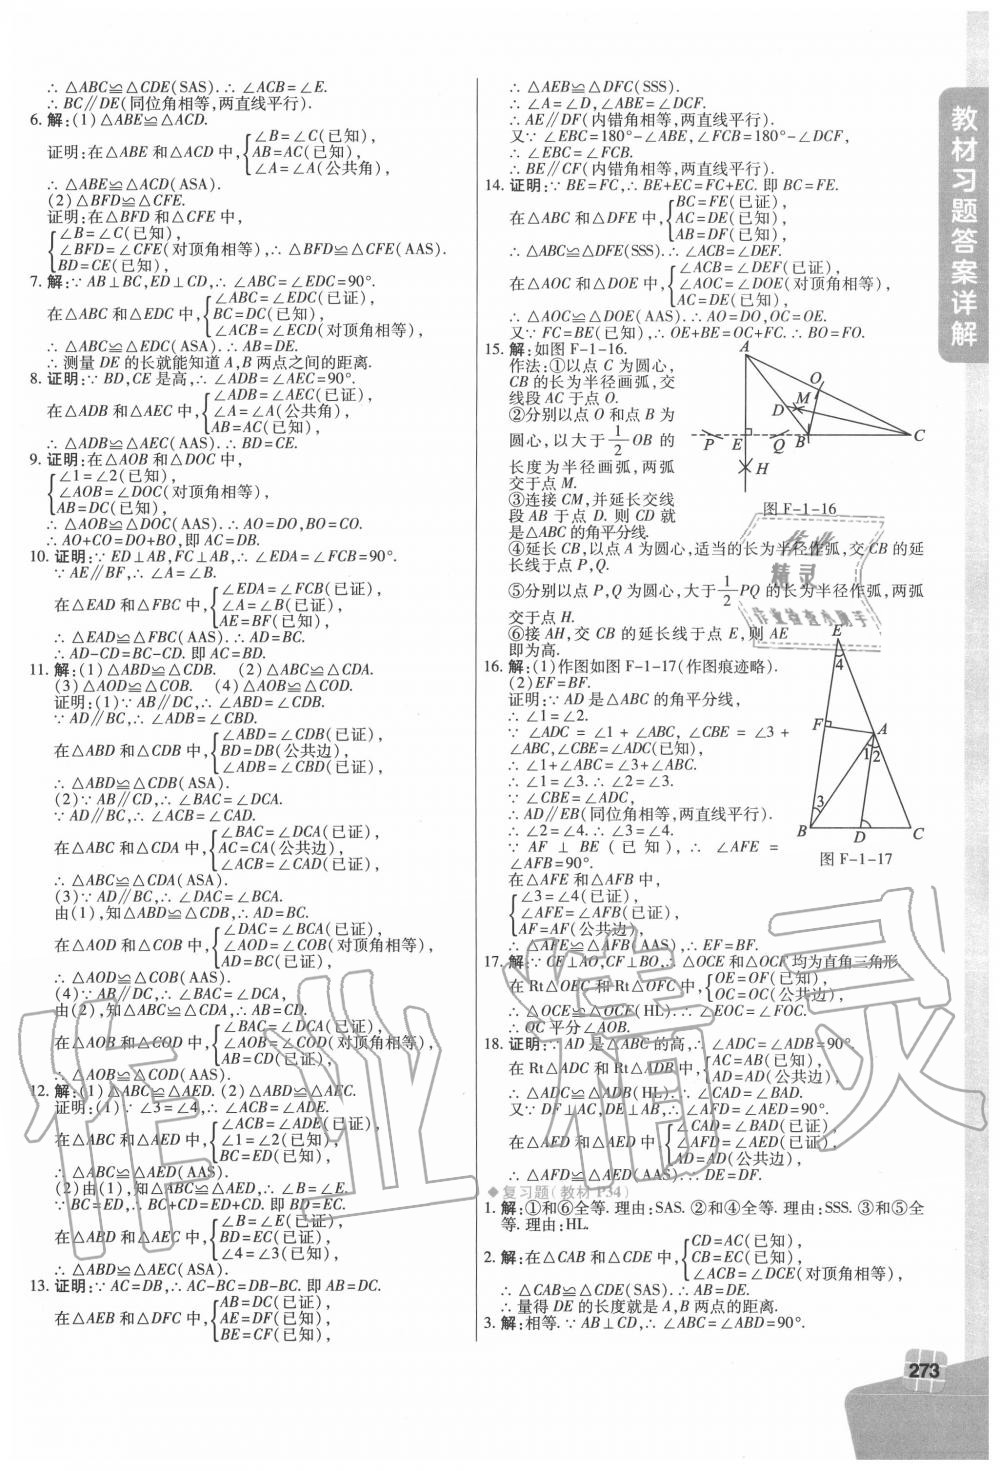 ∴ △ABC≌△CDE(SAS).∴ ∠ACB=∠E.
∴ BC∥DE(同位角相等,两直线平行).
6. 解:(1)△ABE≌△ACD.
证明:在△ABE和△ACD中,{∠B=∠C(已知),
AB=AC(已知),
∠A=∠A(公共角),
∴ △ABE≌△ACD(ASA).
(2)△BFD≌△CFE.
证明:在△BFD和△CFE中,
{∠B=∠C(已知),
∠BFD=∠CFE(对顶角相等),∴ △BFD≌△CFE(AAS).
BD=CE(已知),
7. 解:∵ AB⊥BC,ED⊥CD,∴ ∠ABC=∠EDC=90°.
在△ABC和△EDC中,{∠ABC=∠EDC(已证),
BC=DC(已知),
∠ACB=∠ECD(对顶角相等),
∴ △ABC≌△EDC(ASA).∴ AB=DE.
∴ 测量DE的长就能知道A,B两点之间的距离.
8. 证明:∵ BD,CE是高,∴ ∠ADB=∠AEC=90°.
在△ADB和△AEC中,{∠ADB=∠AEC(已证),
∠A=∠A(公共角),
AB=AC(已知),
∴ △ADB≌△AEC(AAS).∴ BD=CE.
9. 证明:在△AOB和△DOC中,
{∠1=∠2(已知),
∠AOB=∠DOC(对顶角相等),
AB=DC(已知),
∴ △AOB≌△DOC(AAS).∴ AO=DO,BO=CO.
∴ AO+CO=DO+BO,即AC=DB.
10. 证明:∵ ED⊥AB,FC⊥AB,∴ ∠EDA=∠FCB=90°.
∵ AE∥BF,∴ ∠A=∠B.
在△EAD和△FBC中,{∠EDA=∠FCB(已证),
∠A=∠B(已证),
AE=BF(已知),
∴ △EAD≌△FBC(AAS).∴ AD=BC.
∴ AD-CD=BC-CD.即AC=BD.
11. 解:(1)△ABD≌△CDB. (2)△ABC≌△CDA.
(3)△AOD≌△COB. (4)△AOB≌△COD.
证明:(1)∵ AB∥DC,∴ ∠ABD=∠CDB.
∵ AD∥BC,∴ ∠ADB=∠CBD.
在△ABD和△CDB中,{∠ABD=∠CDB(已证),
BD=DB(公共边),
∠ADB=∠CBD(已证),
∴ △ABD≌△CDB(ASA).
(2)∵ AB∥CD,∴ ∠BAC=∠DCA.
∵ AD∥BC,∴ ∠ACB=∠CAD.
在△ABC和△CDA中,{∠BAC=∠DCA(已证),
AC=CA(公共边),
∠ACB=∠CAD(已证),
∴ △ABC≌△CDA(ASA).
(3)∵ AD∥BC,∴ ∠DAC=∠BCA.
由(1),知△ABD≌△CDB,∴ AD=BC.
在△AOD和△COB中,{∠DAC=∠BCA(已证),
∠AOD=∠COB(对顶角相等),
AD=BC(已证),
∴ △AOD≌△COB(AAS).
(4)∵ AB∥DC,∴ ∠BAC=∠DCA,
由(2),知△ABC≌△CDA,∴ AB=CD.
在△AOB和△COD中,{∠BAC=∠DCA(已证),
∠AOB=∠COD(对顶角相等),
AB=CD(已证),
∴ △AOB≌△COD(AAS).
12. 解:(1)△ABC≌△AED.(2)△ABD≌△AEC.
证明:(1)∵ ∠3=∠4,∴ ∠ACB=∠ADE.
在△ABC和△AED中,{∠ACB=∠ADE(已证),
∠1=∠2(已知),
BC=ED(已知),
∴ △ABC≌△AED(AAS).
(2)由(1),知△ABC≌△AED,∴ ∠B=∠E.
∵BC=ED,∴ BC+CD=ED+CD.即BD=EC.
在△ABD和△AEC中,{∠B=∠E(已证),
BD=EC(已证),
∠4=∠3(已知),
∴ △ABD≌△AEC(ASA).
13. 证明:∵ AC=DB,∴ AC-BC=DB-BC.即AB=DC.
在△AEB和△DFC中,{AB=DC(已证),
AE=DF(已知),
BE=CF(已知),
∴ △AEB≌△DFC(SSS).
∴ ∠A=∠D,∠ABE=∠DCF.
∴ AE∥DF(内错角相等,两直线平行).
又∵ ∠EBC=180°-∠ABE,∠FCB=180°-∠DCF,
∴ ∠EBC=∠FCB.
∴ BE∥CF(内错角相等,两直线平行).
14. 证明:∵ BE=FC,∴ BE+EC=FC+EC.即BC=FE.
在△ABC和△DFE中,{BC=FE(已证),
AC=DE(已知),
AB=DF(已知),
∴ △ABC≌△DFE(SSS).∴ ∠ACB=∠DEF.
在△AOC和△DOE中,{∠ACB=∠DEF(已证),
∠AOC=∠DOE(对顶角相等),
AC=DE(已知),
∴ △AOC≌△DOE(AAS).∴ AO=DO,OC=OE.
又∵ FC=BE(已知),∴ OE+BE=OC+FC.∴ BO=FO.
15. 解:如图F-1-16.
作法:①以点C为圆心,
CB的长为半径画弧,交
线段AC于点O.
②分别以点O和点B为
圆心,以大于1/2OB的
长度为半径画弧,两弧
交于点M.
③连接CM,并延长交线
段AB于点D.则CD就
是△ABC的角平分线.
A
O
M
D
P E Q B C
H
图F-1-16
④延长CB,以点A为圆心,适当的长为半径作弧,交CB的延
长线于点P,Q.
⑤分别以点P,Q为圆心,大于1/2PQ的长为半径作弧,两弧
交于点H.
⑥接AH,交CB的延长线于点E,则AE
即为高.
16. 解:(1)作图如图F-1-17(作图痕迹略).
(2)EF=BF.
证明:∵ AD是△ABC的角平分线,
∴ ∠1=∠2.
∵ ∠ADC=∠1+∠ABC,∠CBE=∠3+
∠ABC,∠CBE=∠ADC(已知),
∴ ∠1+∠ABC=∠3+∠ABC.
∴ ∠1=∠3.∴ ∠2=∠3.
∵ ∠CBE=∠ADC,
∴ AD∥EB(同位角相等,两直线平行).
∴ ∠2=∠4.∴ ∠3=∠4.
∵ AF⊥BE(已知),∴ ∠AFE=
∠AFB=90°.
在△AFE和△AFB中,
{∠3=∠4(已证),
∠AFE=∠AFB(已证),
AF=AF(公共边),
∴ △AFE≌△AFB(AAS),∴ EF=BF.
E
4
F
A
1 2
3
B D C
图F-1-17
17. 解:∵ CE⊥AO,CF⊥BO,∴ △OCE和△OCF均为直角三角形.
在Rt△OEC和Rt△OFC中,{OE=OF(已知),
OC=OC(公共边),
∴ △OCE≌△OCF(HL).∴ ∠EOC=∠FOC.
∴ OC平分∠AOB.
18. 证明:∵ AD是△ABC的高,∴ ∠ADC=∠ADB=90°.
在Rt△ADC和Rt△ADB中,{AC=AB(已知),
AD=AD(公共边),
∴ △ADC≌△ADB(HL).∴ ∠CAD=∠BAD.
又∵ DF⊥AC,DE⊥AB,∴ ∠AFD=∠AED=90°.
在△AFD和△AED中,{∠CAD=∠BAD(已证),
∠AFD=∠AED(已证),
AD=AD(公共边),
∴ △AFD≌△AED(AAS).∴ DE=DF.
◆复习题(教材P34)
1. 解:①和⑥全等.理由:SAS. ②和④全等.理由:SSS. ③和⑤全
等.理由:HL.
2. 解:在△CAB和△CDE中,{CD=AC(已知),
CB=EC(已知),
∠ACB=∠DCE(对顶角相等),
∴ △CAB≌△CDE(SAS).∴ AB=DE.
∴ 量得DE的长度就是A,B两点的距离.
3. 解:相等.∵ AB⊥CD,∴ ∠ABC=∠ABD=90°.
教材习题答案详解
273
作业精灵
作业
精灵
作业检查小助手